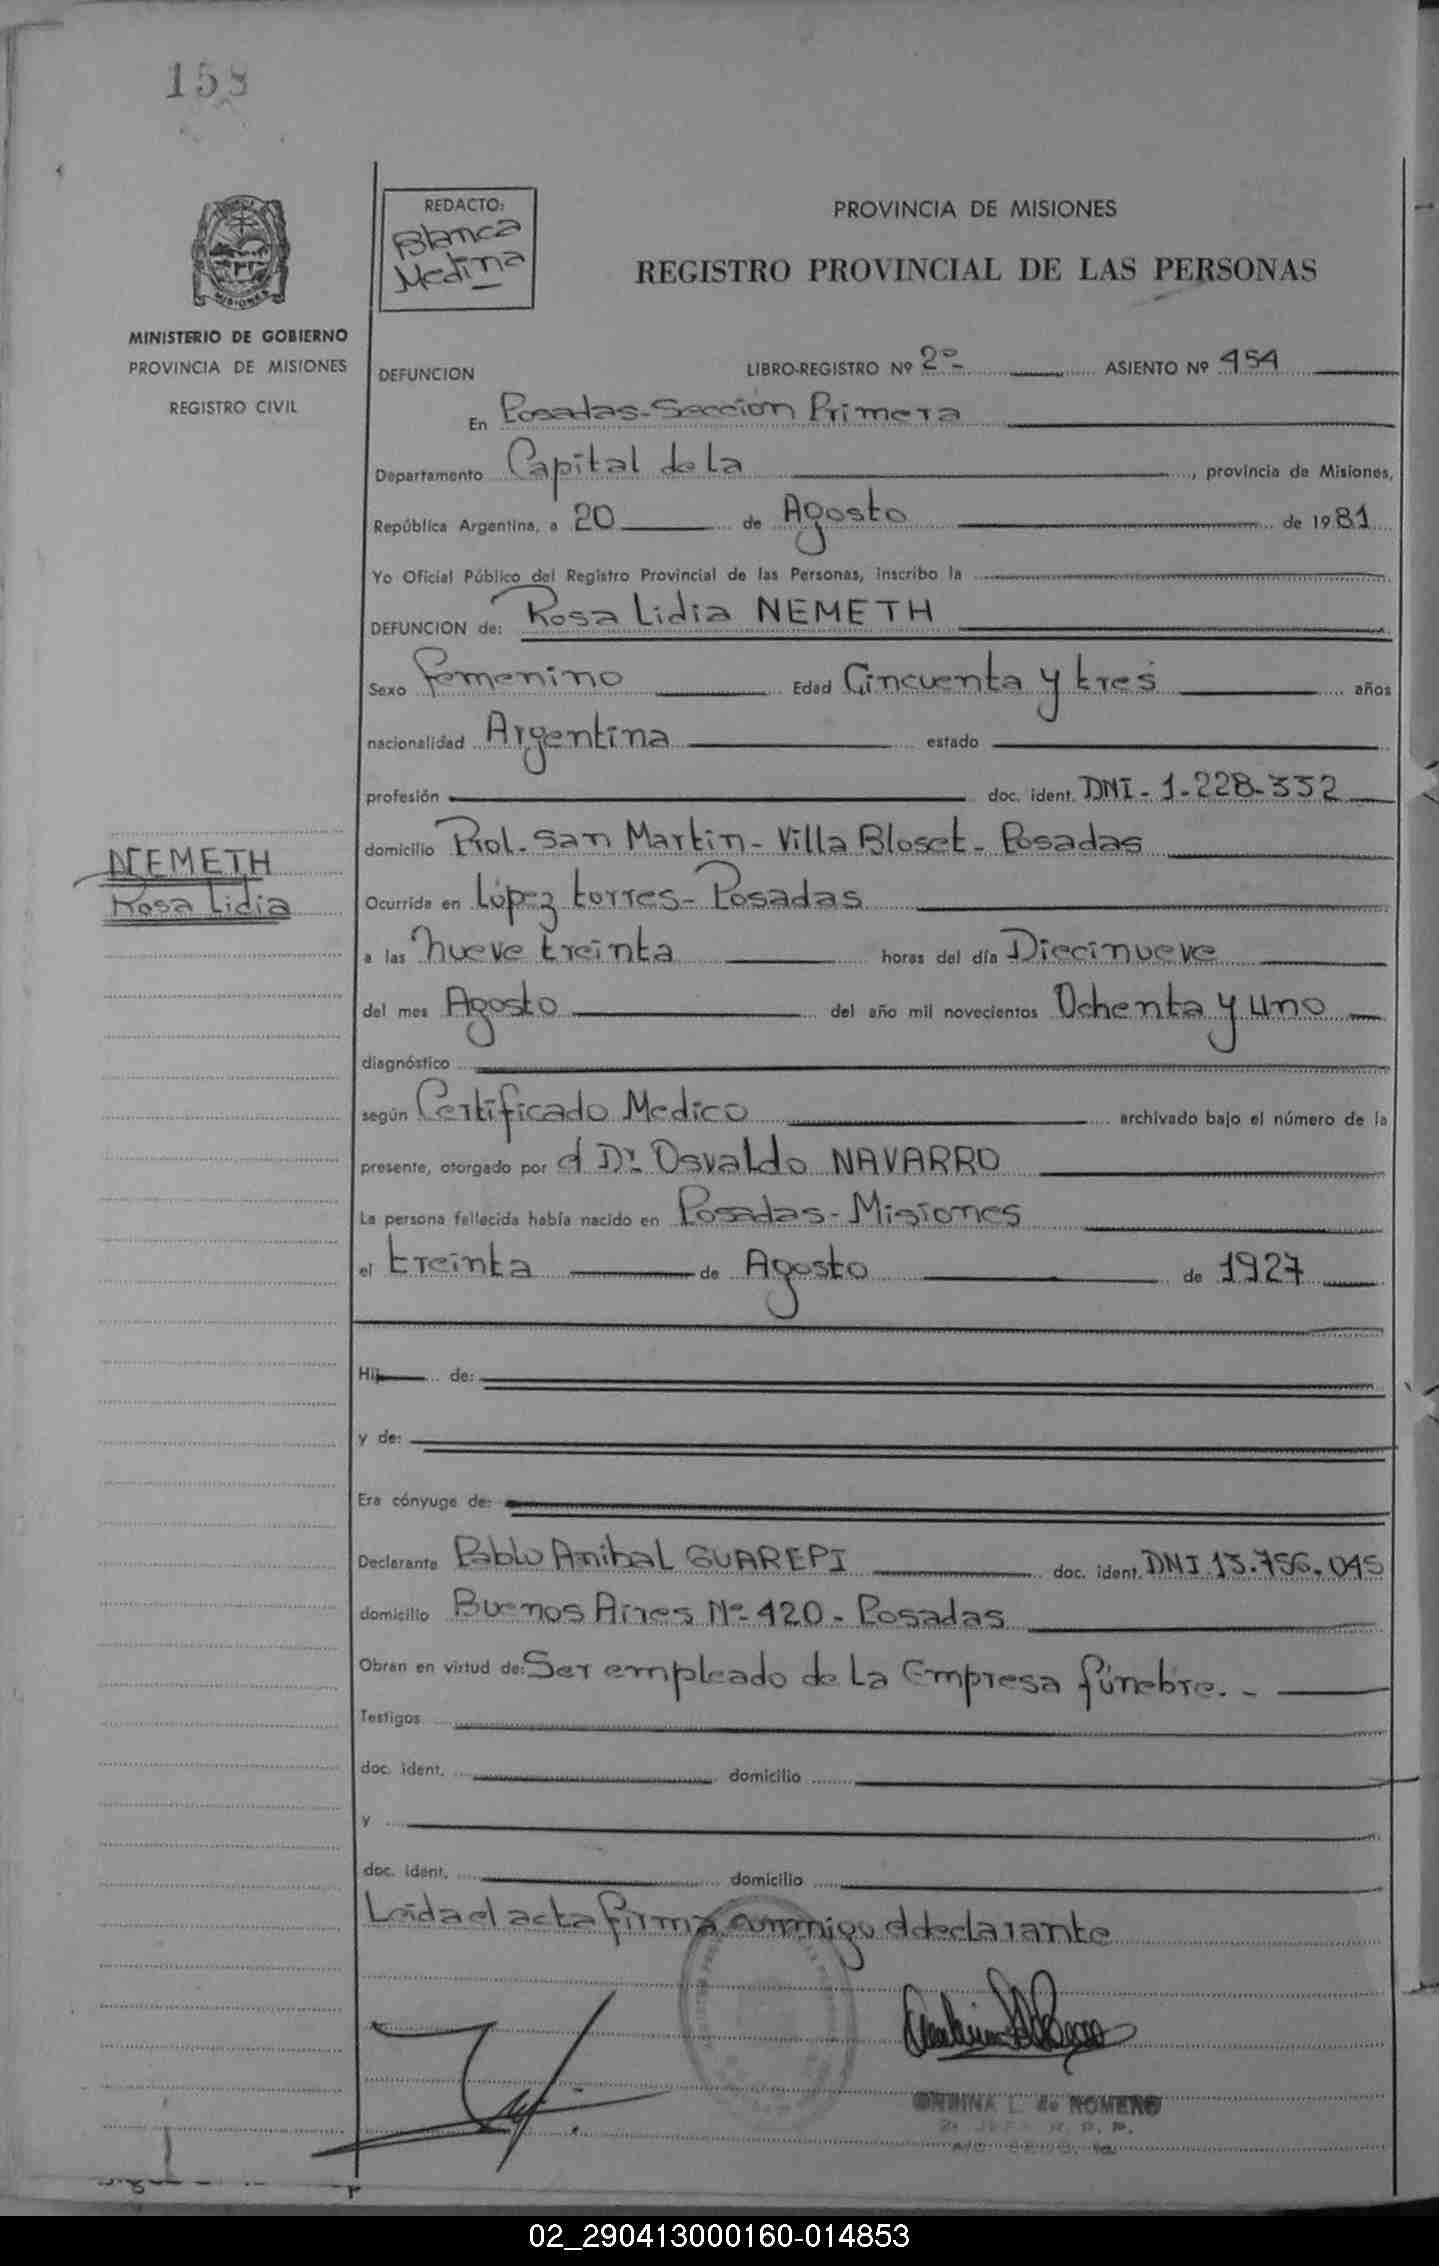 158
REDACTO:
Blanca
Medina
PROVINCIA DE MISIONES
REGISTRO PROVINCIAL DE LAS PERSONAS
MISIONES
MINISTERIO DE GOBIERNO
PROVINCIA DE MISIONES
REGISTRO CIVIL
DEFUNCION LIBRO-REGISTRO Nº 2º- ASIENTO Nº 454
En Posadas-Sección Primera
Departamento Capital de la , provincia de Misiones,
República Argentina, a 20 de Agosto de 1981
Yo Oficial Público del Registro Provincial de las Personas, inscribo la
DEFUNCION de: Rosa Lidia NEMETH
Sexo femenino Edad Cincuenta y tres años
nacionalidad Argentina estado
profesión doc. ident. DNI-1-228-332
NEMETH
Rosa Lidia
domicilio Prol. San Martin-Villa Bloset-Posadas
Ocurrida en López torres-Posadas
a las nueve treinta horas del día Diecinueve
del mes Agosto del año mil novecientos Ochenta y uno
diagnóstico
según Certificado Medico archivado bajo el número de la
presente, otorgado por el Dr. Osvaldo NAVARRO
La persona fallecida había nacido en Posadas-Misiones
el treinta de Agosto de 1927
Hij de:
y de:
Era cónyuge de:
Declarante Pablo Anibal GUAREPI doc. ident. DNI 13.756.045
domicilio Buenos Aires Nº 420-Posadas
Obran en virtud de: Ser empleado de la Empresa fúnebre.-
Testigos
doc. ident. domicilio
y
doc. ident. domicilio
Leida el acta firma conmigo el declarante
L. de ROMERO
02_290413000160-014853